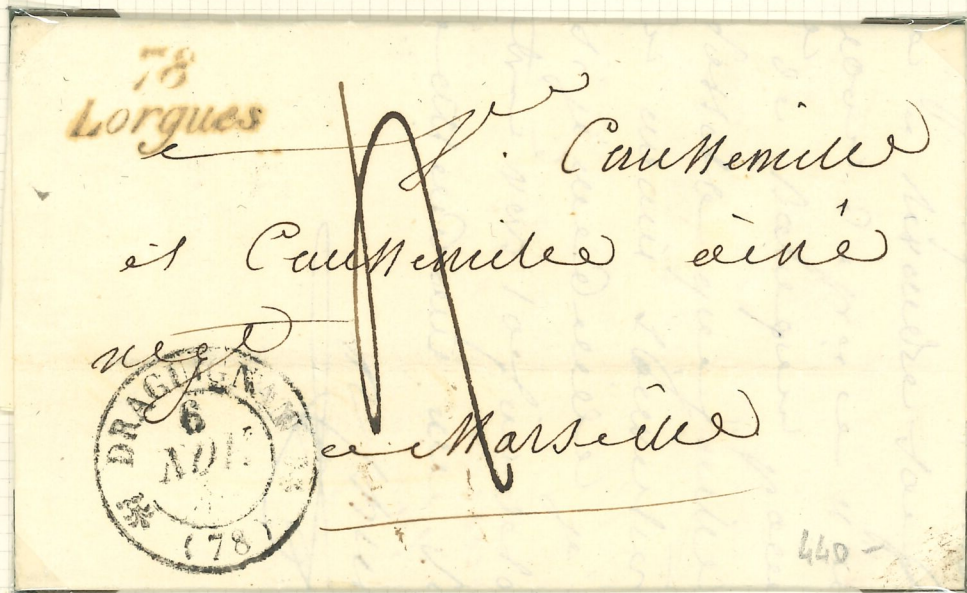 78
Lorgues
Caussemille
et Caussemille ainé
nego
a Marseille
DRAGUIGNAN
6
NOV.
(78)
440 -